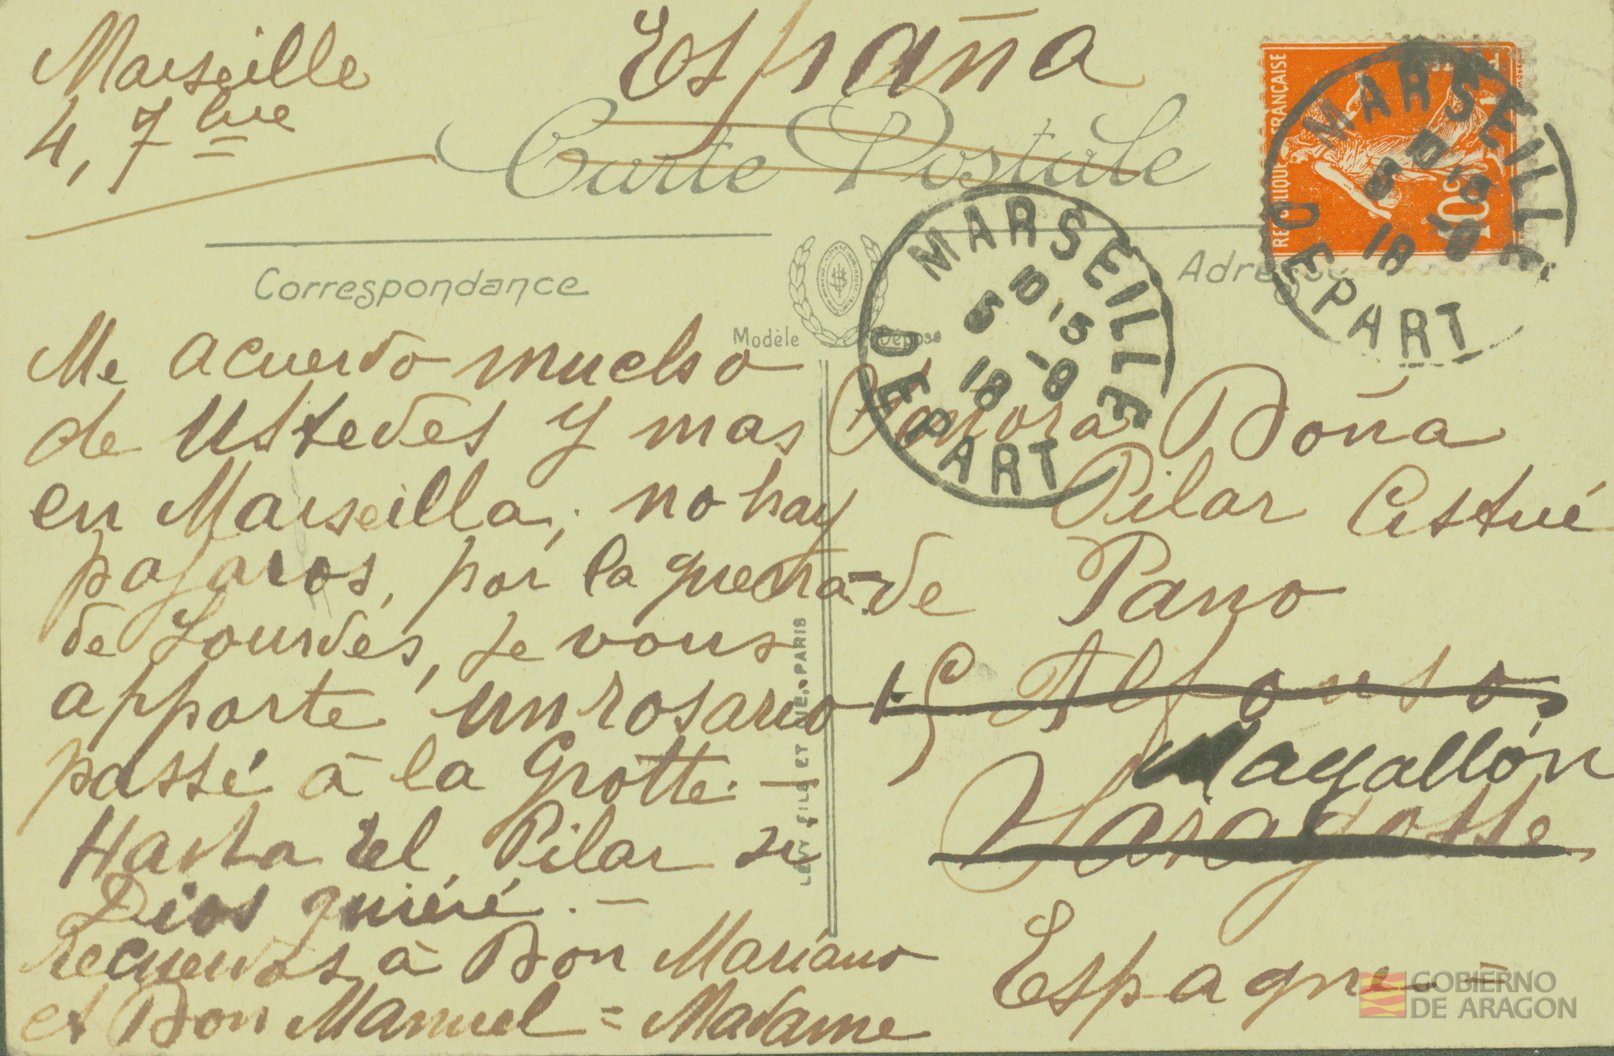 Marseille
4, 7bre
España
Carte Postale
REPUBLIQUE FRANÇAISE
POSTES
10c
MARSEILLE DEPART
10 15
5 -9
18
MARSEILLE DEPART
10 15
5 -9
18
Correspondance
Adresse
Modèle Déposé
Me acuerdo mucho
de Ustedes y mas
en Marseilla, no hay
pajaros, por la guerra
de Lourdes, je vous
apporte un rosario
passé à la Grotte. —
Hasta el Pilar si
Dios quiéré. —
recuerdos à Don Mariano
et Don Manuel = Madame
LEVY FILS ET CIE, PARIS
Señora Doña
Pilar Cistué
de Pano
Alfonso
Magallón
Saragosse
Espagne
GOBIERNO
DE ARAGON